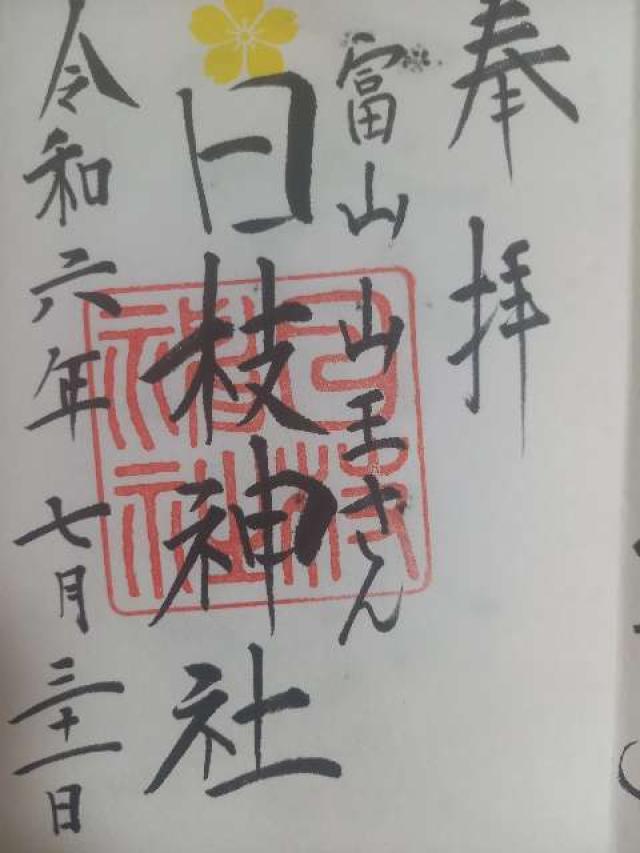 奉拝
富山 山王さん
日枝神社
日枝神社
令和六年 七月 三十一日